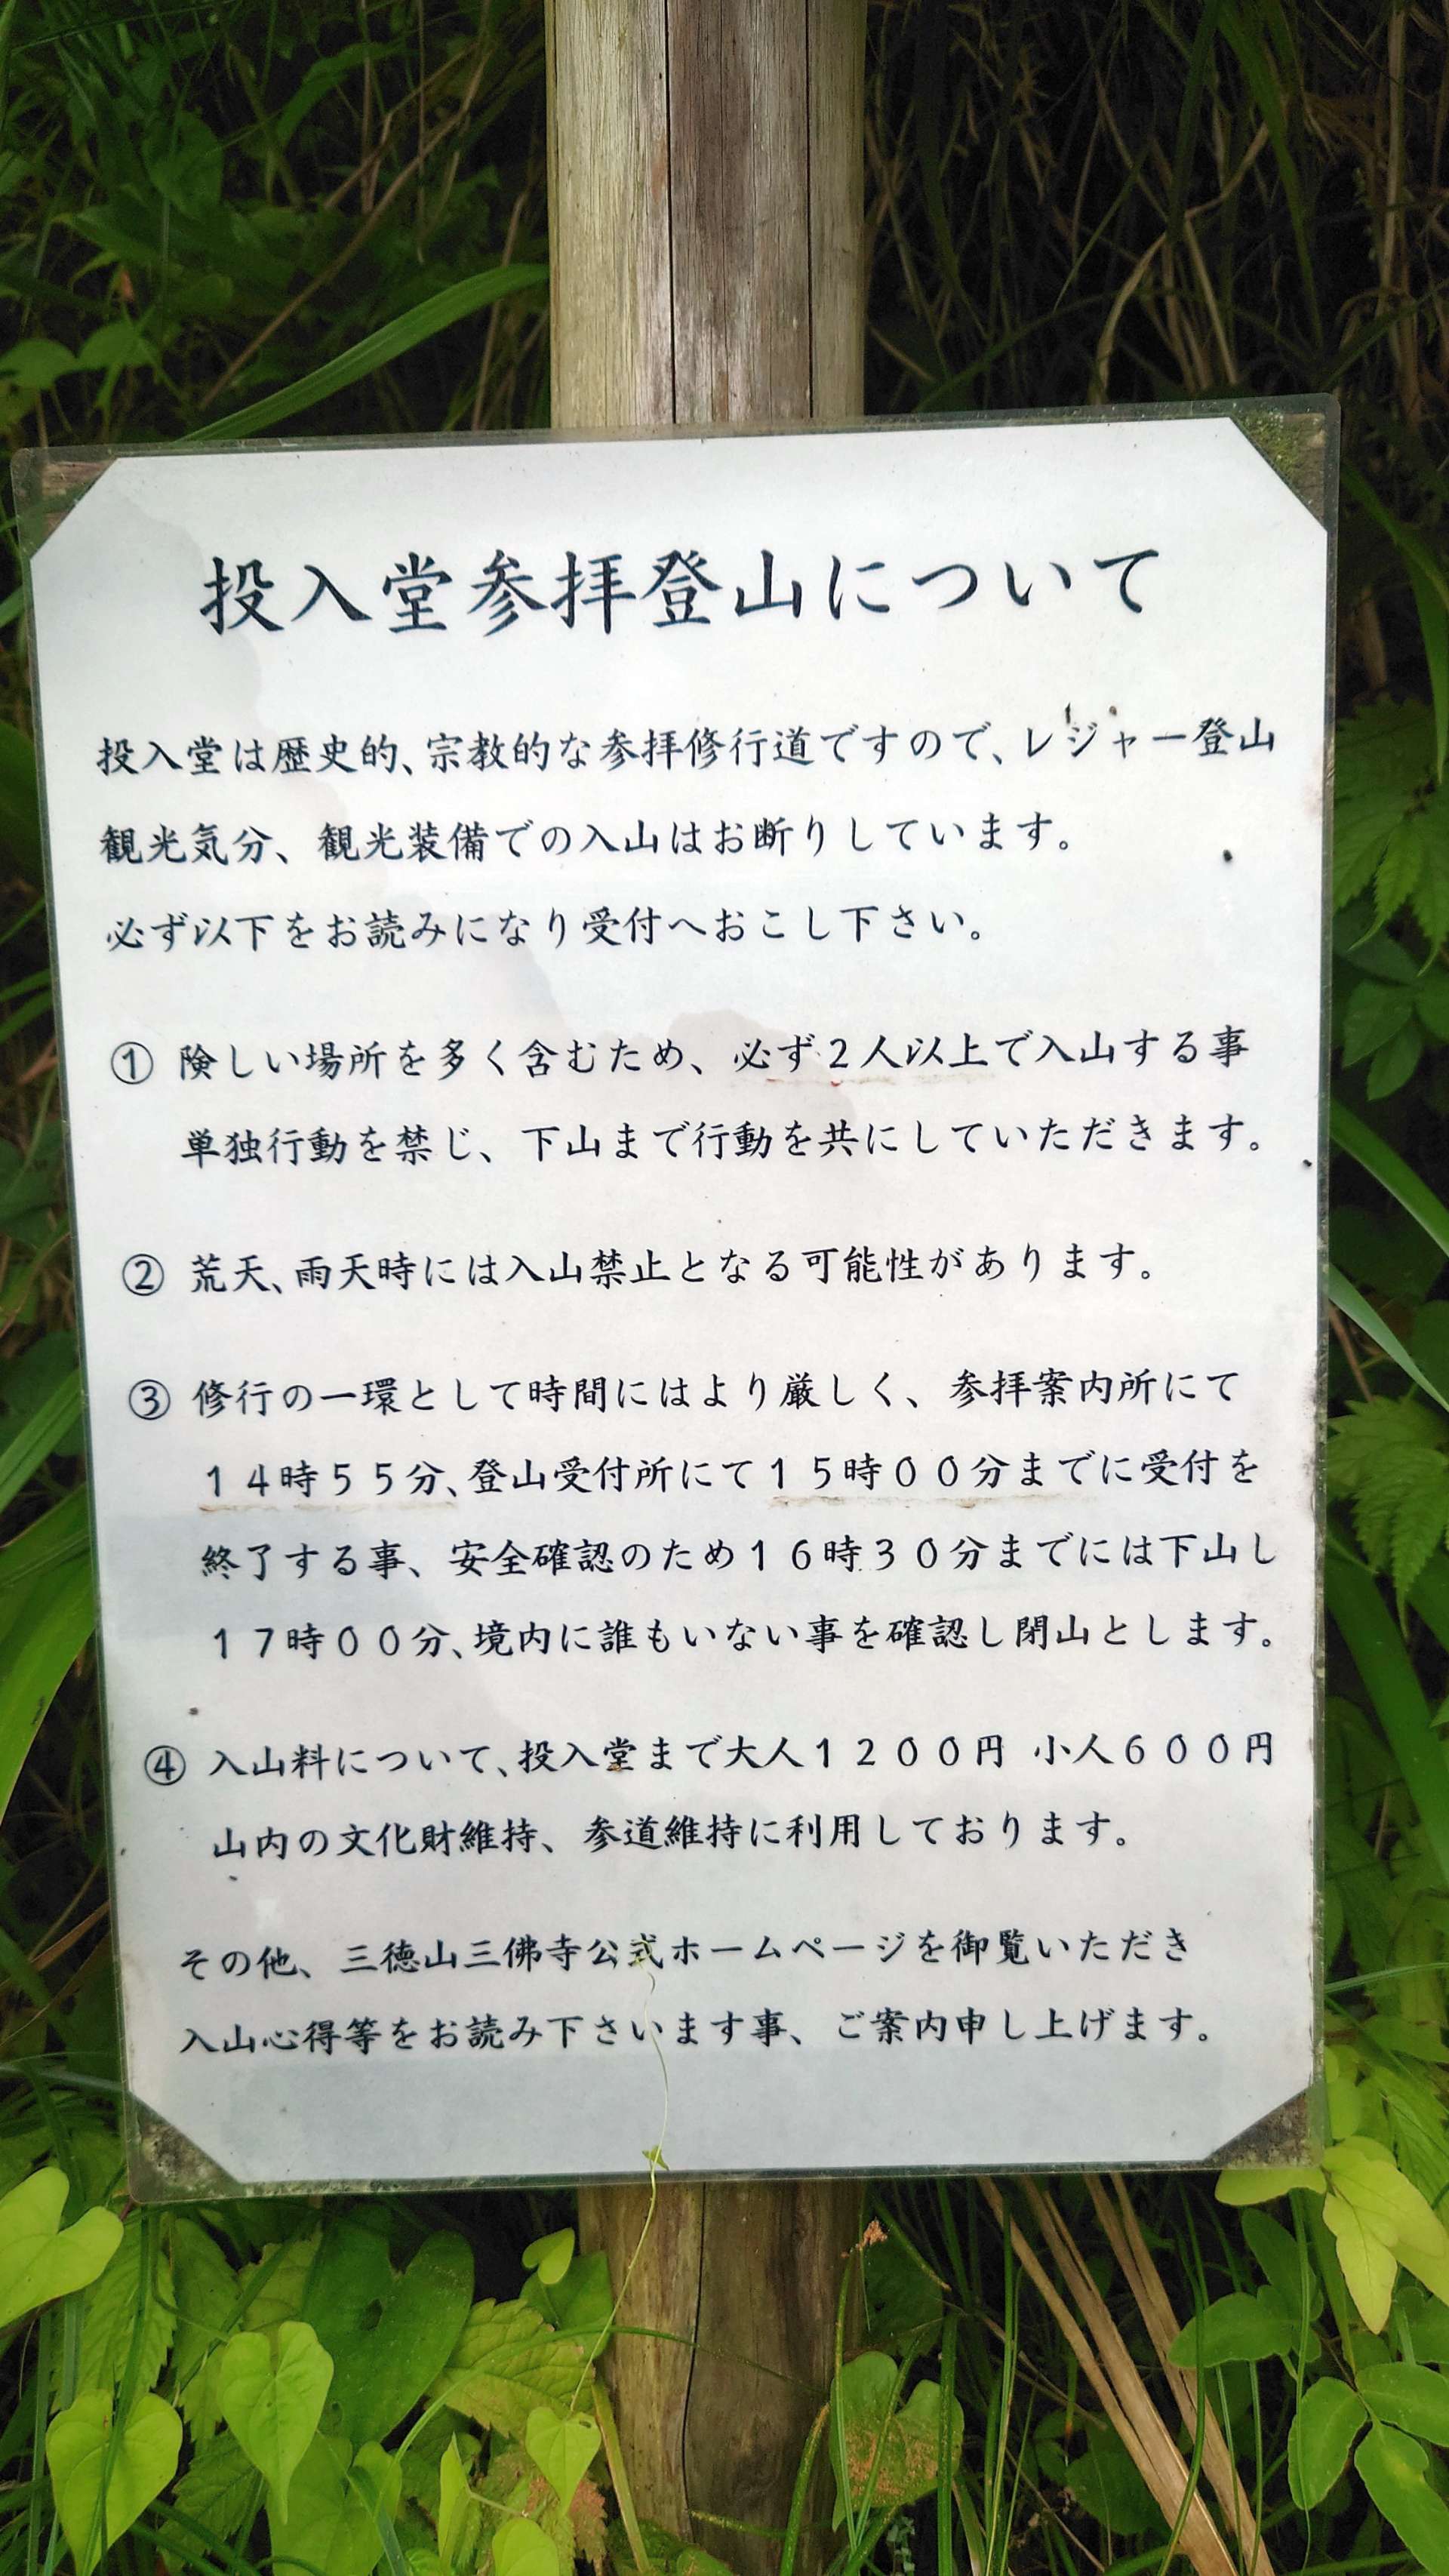 投入堂参拝登山について
投入堂は歴史的、宗教的な参拝修行道ですので、レジャー登山
観光気分、観光装備での入山はお断りしています。
必ず以下をお読みになり受付へおこし下さい。
① 険しい場所を多く含むため、必ず２人以上で入山する事
単独行動を禁じ、下山まで行動を共にしていただきます。
② 荒天、雨天時には入山禁止となる可能性があります。
③ 修行の一環として時間にはより厳しく、参拝案内所にて
１４時５５分、登山受付所にて１５時００分までに受付を
終了する事、安全確認のため１６時３０分までには下山し
１７時００分、境内に誰もいない事を確認し閉山とします。
④ 入山料について、投入堂まで大人１２００円 小人６００円
山内の文化財維持、参道維持に利用しております。
その他、三徳山三佛寺公式ホームページを御覧いただき
入山心得等をお読み下さいます事、ご案内申し上げます。